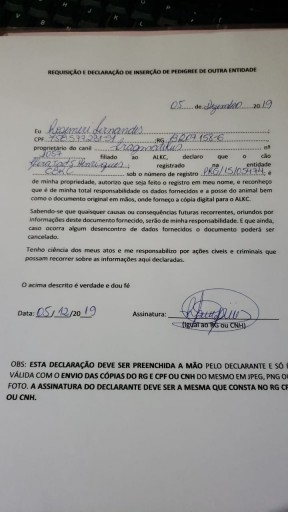 REQUISIÇÃO E DECLARAÇÃO DE INSERÇÃO DE PEDIGREE DE OUTRA ENTIDADE
05 de Dezembro 2019
Eu Rosemeri Fernandes
CPF RG
proprietário do canil nº
filiado ao ALKC, declaro que o cão
registrado na entidade
CBKC sob o número de registro é
de minha propriedade, autorizo que seja feito o registro em meu nome, e reconheço
que é de minha total responsabilidade os dados fornecidos e a posse do animal bem
como o documento original em mãos, onde forneço a cópia digital para o ALKC.
Sabendo-se que quaisquer causas ou consequências futuras recorrentes, oriundos por
informações deste documento fornecido, serão de minha responsabilidade. E que ainda,
caso ocorra algum desencontro de dados fornecidos o documento poderá ser
cancelado.
Tenho ciência dos meus atos e me responsabilizo por ações cíveis e criminais que
possam recorrer sobre as informações aqui declaradas.
O acima descrito é verdade e dou fé
Data: 05/12/2019 Assinatura:
(Igual ao RG ou CNH)
OBS: ESTA DECLARAÇÃO DEVE SER PREENCHIDA A MÃO PELO DECLARANTE E SÓ
VÁLIDA COM O ENVIO DAS CÓPIAS DO RG E CPF OU CNH DO MESMO EM JPEG, PNG OU
FOTO. A ASSINATURA DO DECLARANTE DEVE SER A MESMA QUE CONSTA NO RG
OU CNH.